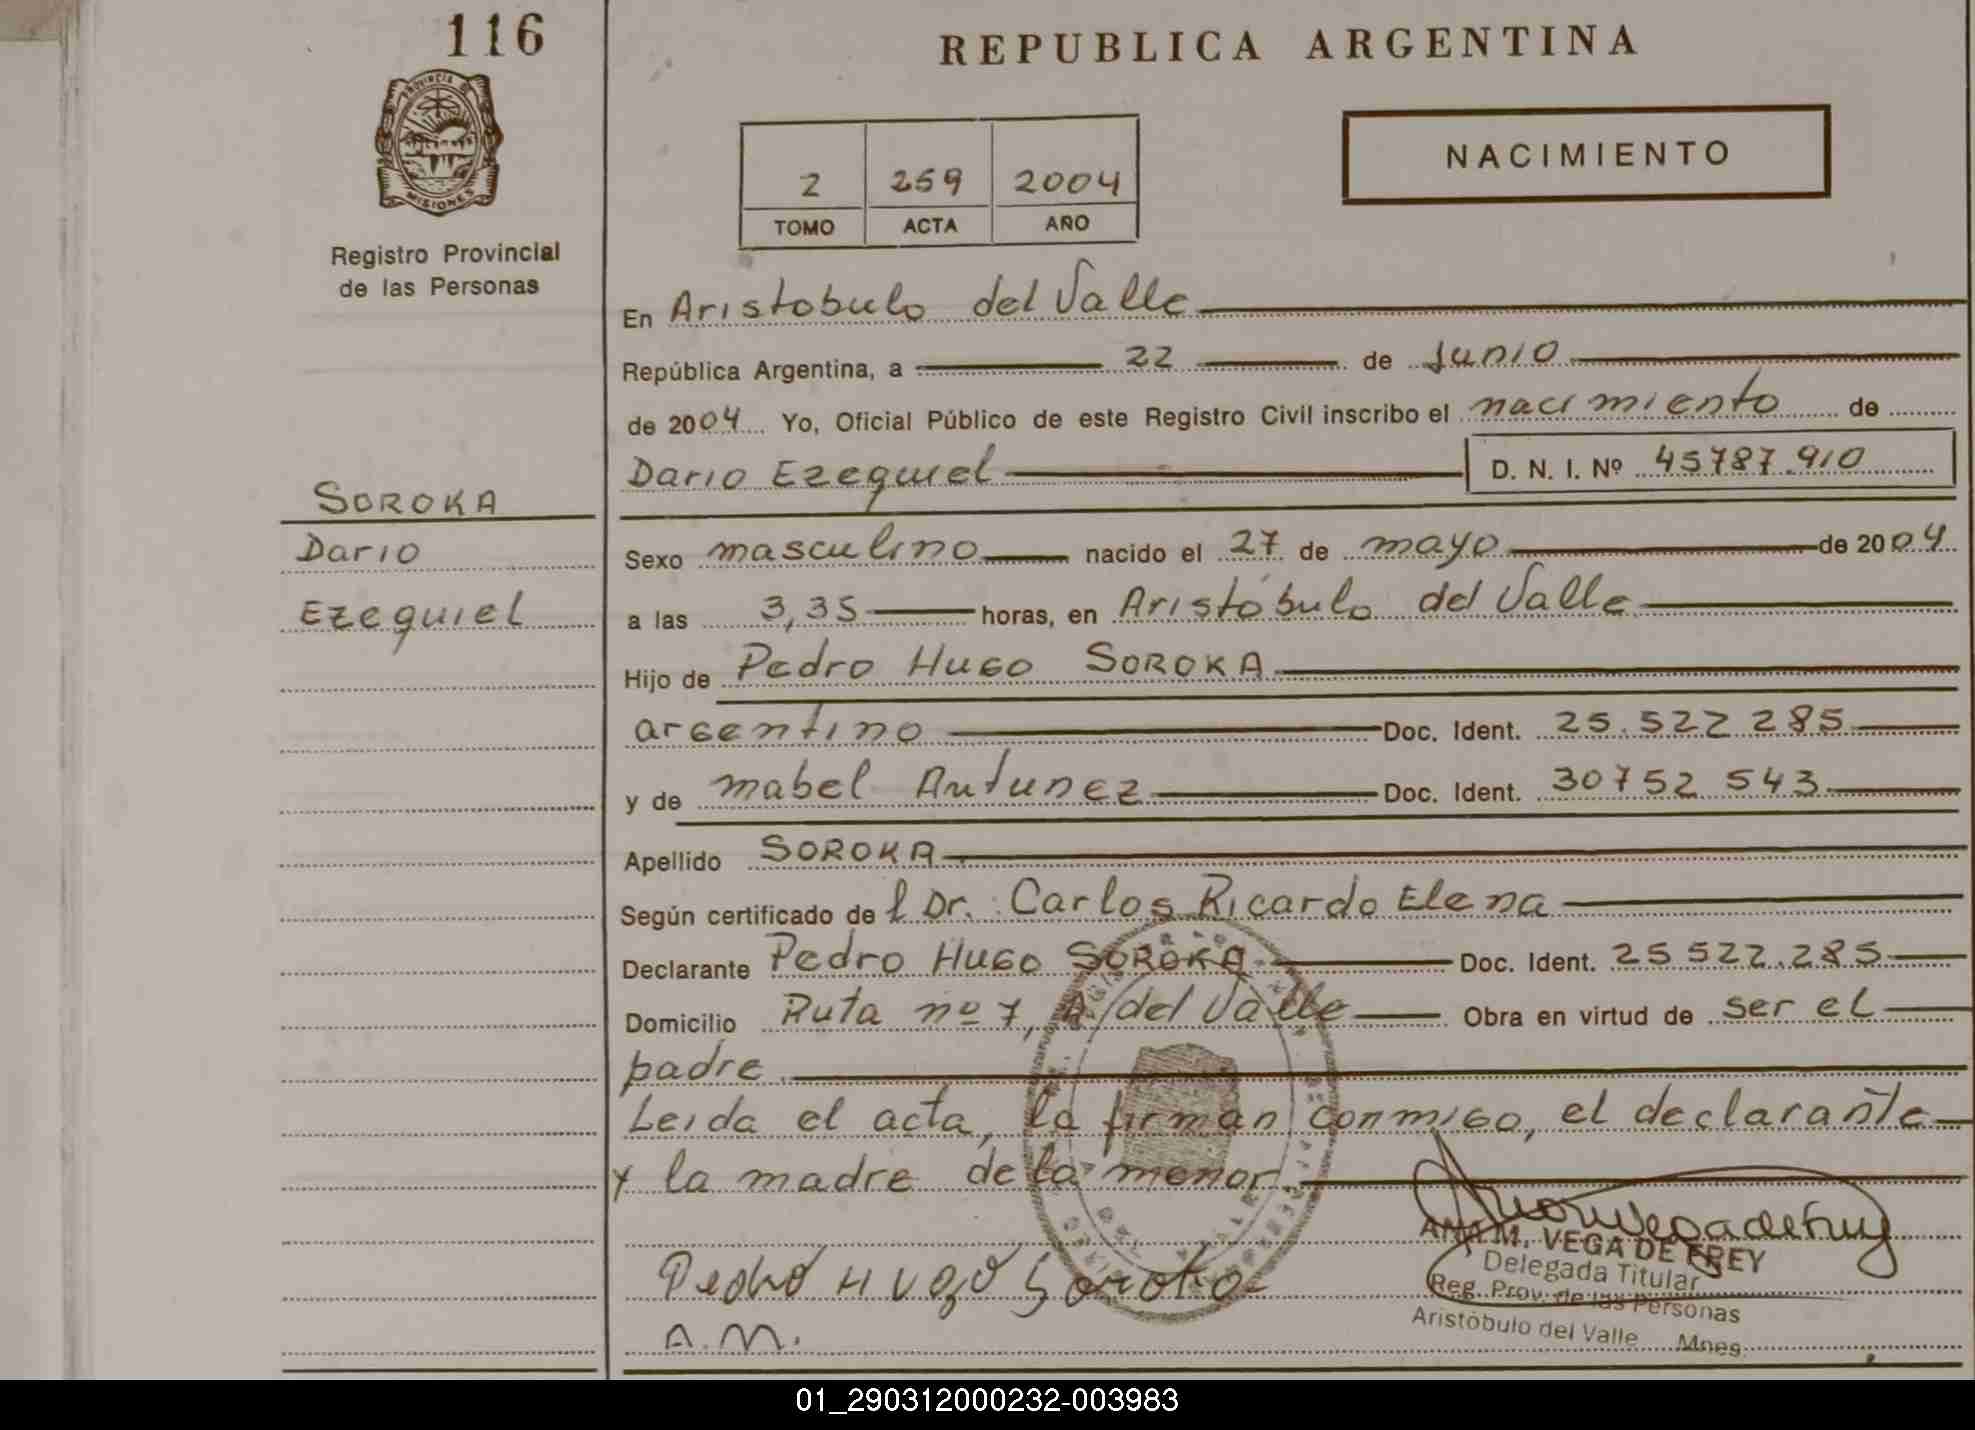 116
REPUBLICA ARGENTINA
PROVINCIA DE
MISIONES
Registro Provincial
de las Personas
NACIMIENTO
2 259 2004
TOMO ACTA AÑO
En Aristobulo del Valle
República Argentina, a 22 de Junio
de 2004 Yo, Oficial Público de este Registro Civil inscribo el nacimiento de
Dario Ezequiel D. N. I. Nº 45787.910
SOROKA
Dario
Ezequiel
Sexo masculino nacido el 27 de mayo de 2004
a las 3,35 horas, en Aristóbulo del Valle
Hijo de Pedro Hugo SOROKA
argentino Doc. Ident. 25.522 285
y de mabel Antunez Doc. Ident. 30752 543
Apellido SOROKA
Según certificado del Dr. Carlos Ricardo Elena
Declarante Pedro Hugo SOROKA Doc. Ident. 25 522.285
Domicilio Ruta nº 7, A. del Valle Obra en virtud de ser el
padre
Leida el acta, la firman conmigo, el declarante
y la madre de la menor
Pedro Hugo Soroka
A.M.
ANA M. VEGA DE FREY
Delegada Titular
Reg. Prov. de las Personas
Aristóbulo del Valle Mnes.
01_290312000232-003983